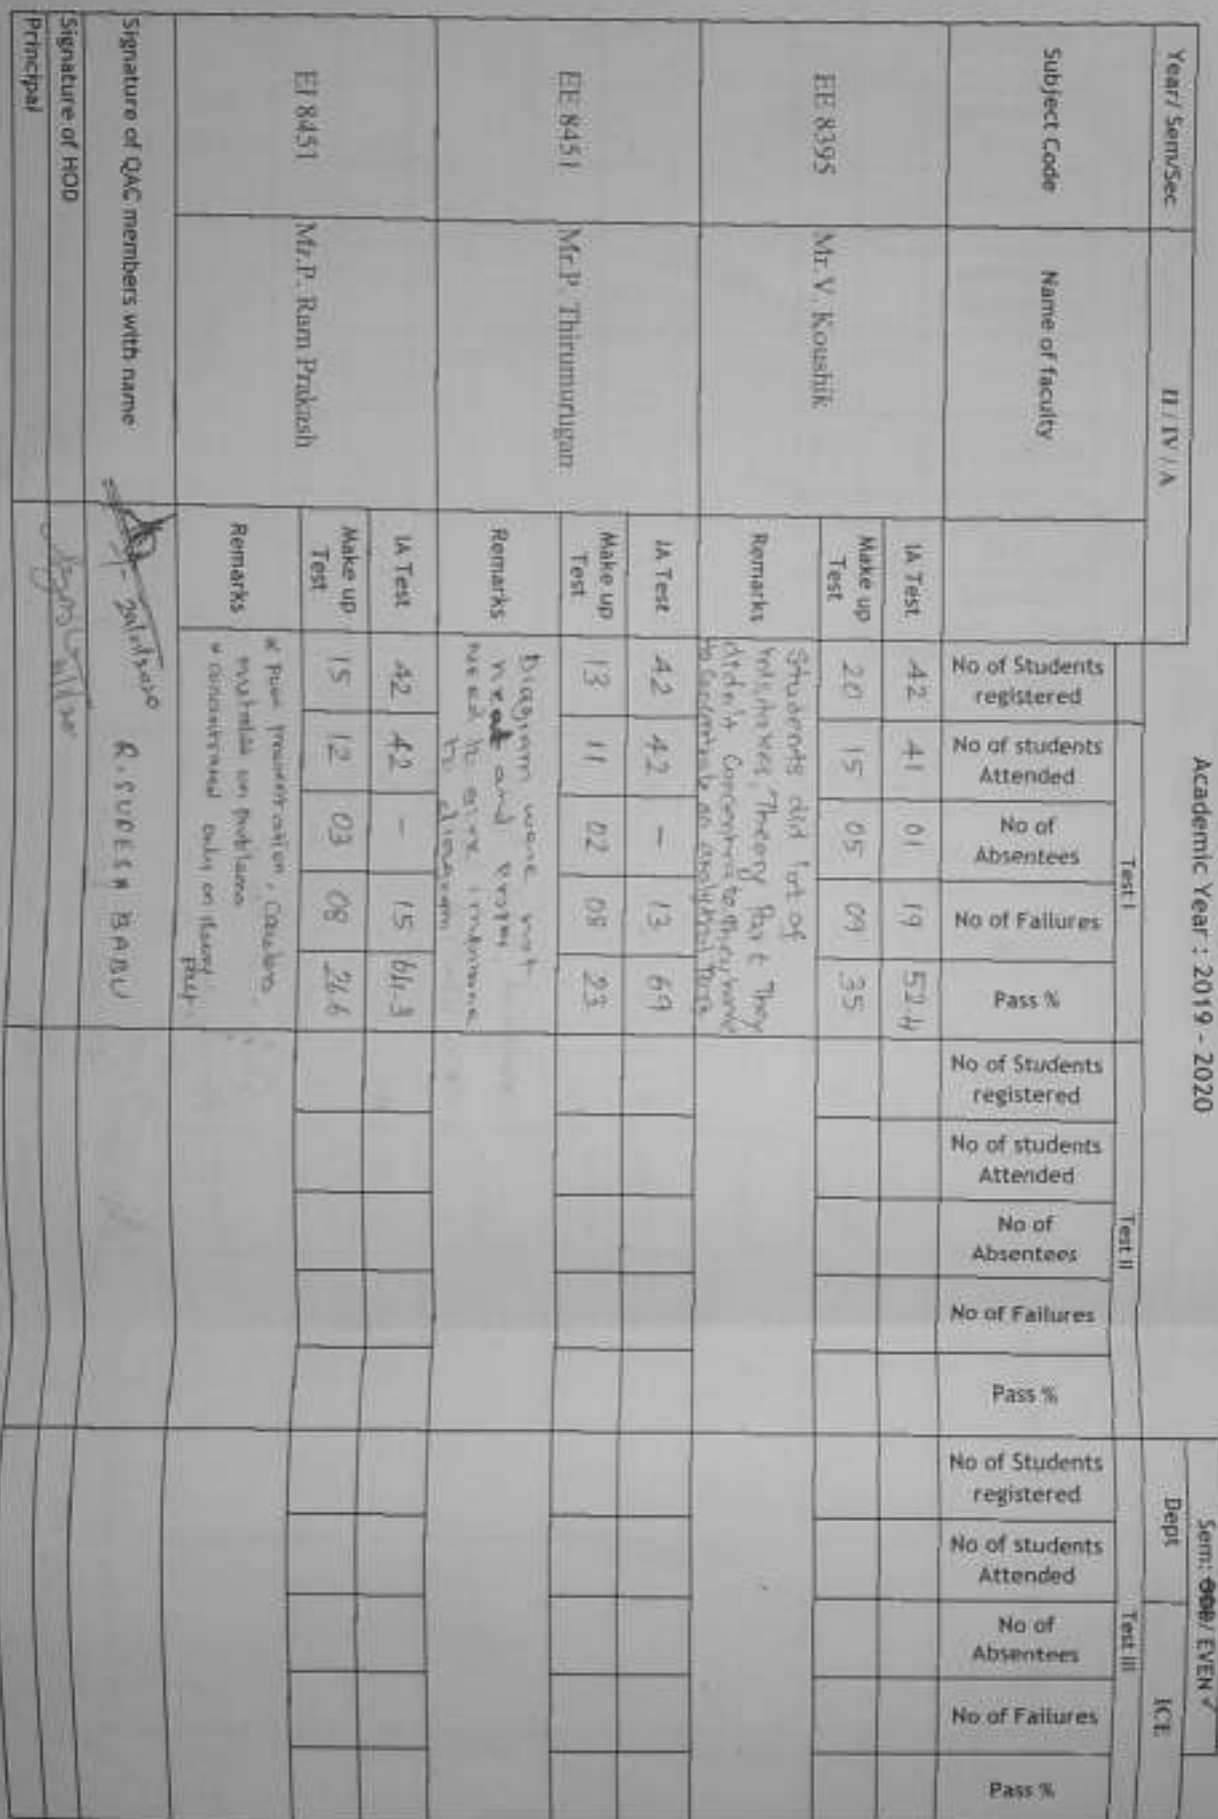 Academic Year : 2019 - 2020
Sem: ODD/ EVEN ✓
Year/ Sem/Sec II / IV / A Dept ICE
Test I Test II Test III
Subject Code Name of faculty
No of Students registered No of students Attended No of Absentees No of Failures Pass %
No of Students registered No of students Attended No of Absentees No of Failures Pass %
No of Students registered No of students Attended No of Absentees No of Failures Pass %
EE 8395 Mr.V. Koushik
IA Test 42 41 01 19 52.4
Make up Test 20 15 05 09 35
Remarks
Students did lot of
mistakes, Theory Part They
didn't Concentrate they
to Concentrate on
EE 8451 Mr.P. Thirumurugan
IA Test 42 42 - 13 69
Make up Test 13 11 02 08 23
Remarks
Diagram were not
neat and
need to give
to diagram
EI 8451 Mr.P. Ram Prakash
IA Test 42 42 - 15 64.3
Make up Test 15 12 03 08 26.6
Remarks
* Poor presentation,
mistakes on problems
* concentrated only on theory
part.
Signature of QAC members with name R. SUDESH BABU
Signature of HOD
Principal